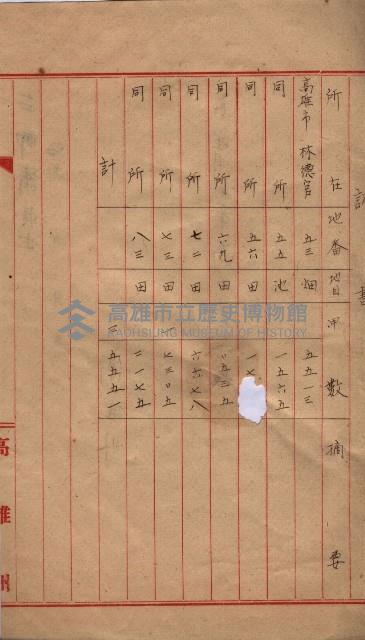 書
所在 地番 地目 甲 數 摘要
高雄市 林德官 五三 畑 五五一三
同 所 五五 池 一五六五
同 所 五六 田 一
同 所 六九 田 〇五三五
同 所 七二 田 六六七八
同 所 七三 田 七三〇五
同 所 八三 田 二一七五
計 三 五五五一
高雄州
高雄市立歷史博物館
KAOHSIUNG MUSEUM OF HISTORY